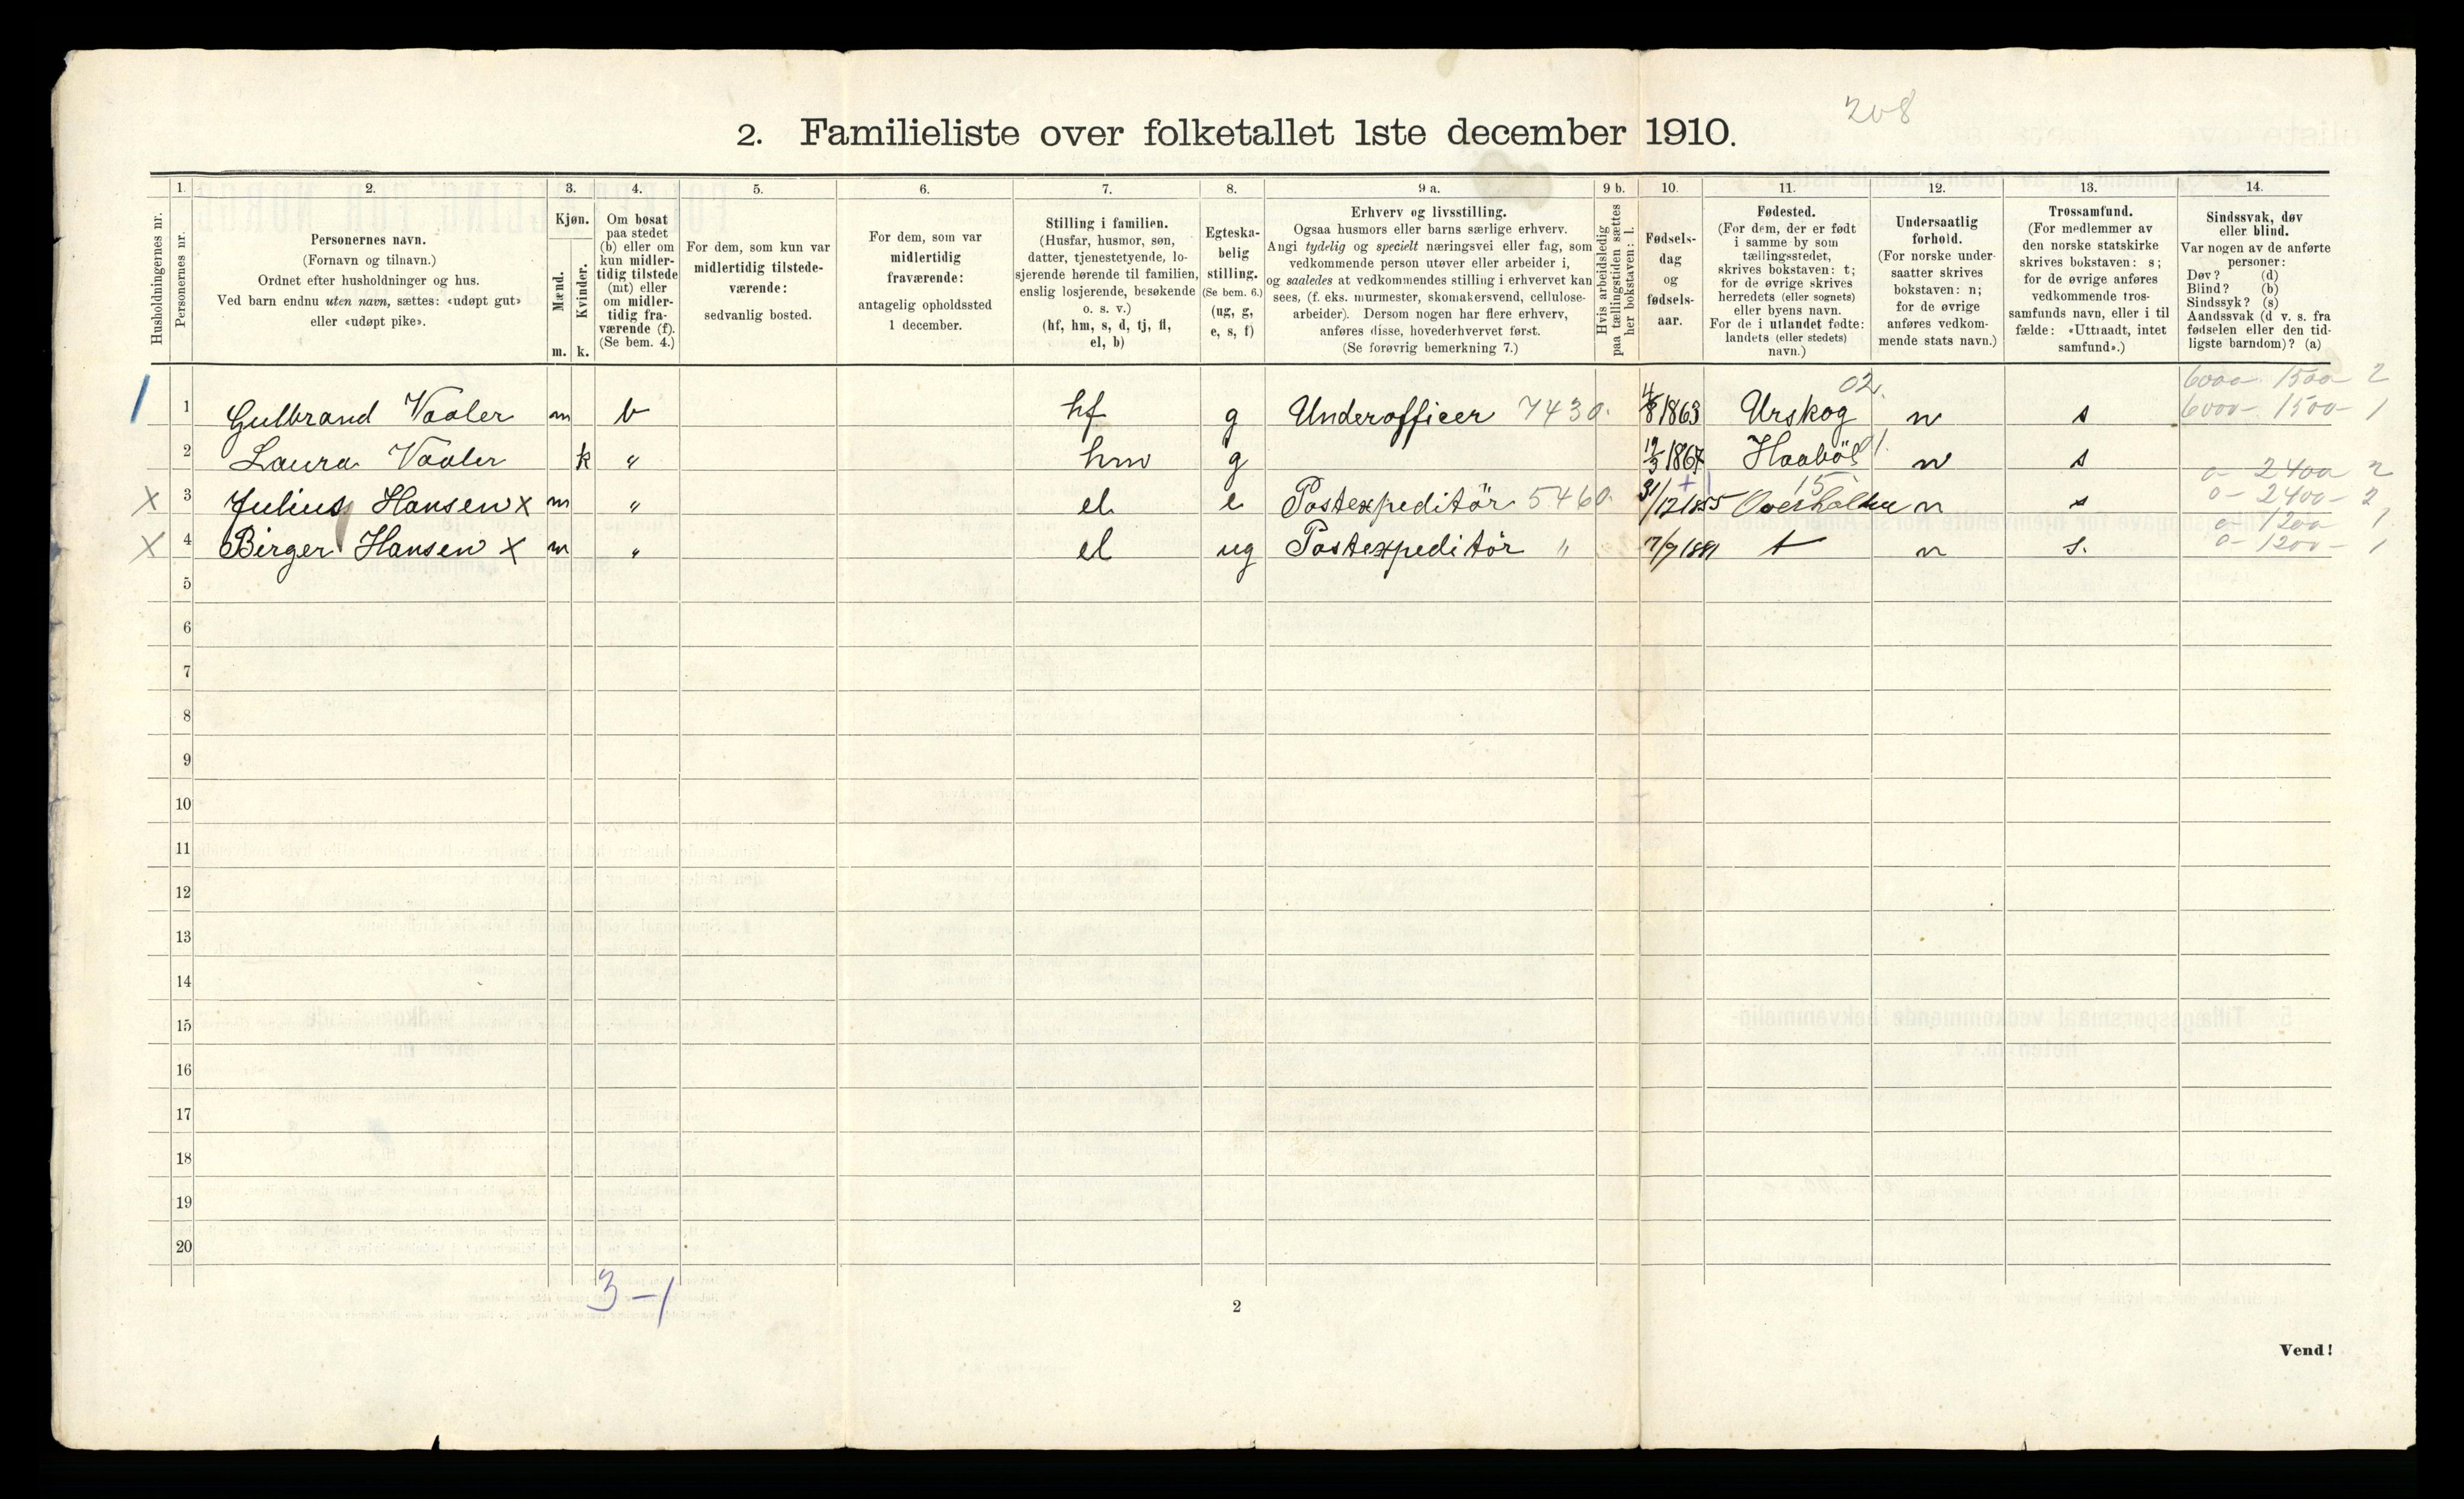 208
2. Familieliste over folketallet 1ste december 1910.
Husholdningernes nr.
1.
Personernes nr.
2.
Personernes navn.
(Fornavn og tilnavn.)
Ordnet efter husholdninger og hus.
Ved barn endnu uten navn, sættes: «udøpt gut»
eller «udøpt pike».
3.
Kjøn.
Mænd.
Kvinder.
m. k.
4.
Om bosat
paa stedet
(b) eller om
kun midler-
tidig tilstede
(mt) eller
om midler-
tidig fra-
værende (f).
(Se bem. 4.)
5.
For dem, som kun var
midlertidig tilstede-
værende:
sedvanlig bosted.
6.
For dem, som var
midlertidig
fraværende:
antagelig opholdssted
1 december.
7.
Stilling i familien.
(Husfar, husmor, søn,
datter, tjenestetyende, lo-
sjerende hørende til familien,
enslig losjerende, besøkende
o. s. v.)
(hf, hm, s, d, tj, fl,
el, b)
8.
Egteska-
belig
stilling.
(Se bem. 6.)
(ug, g,
e, s, f)
9 a.
Erhverv og livsstilling.
Ogsaa husmors eller barns særlige erhverv.
Angi tydelig og specielt næringsvei eller fag, som
vedkommende person utøver eller arbeider i,
og saaledes at vedkommendes stilling i erhvervet kan
sees, (f. eks. murmester, skomakersvend, cellulose-
arbeider). Dersom nogen har flere erhverv,
anføres disse, hovederhvervet først.
(Se forøvrig bemerkning 7.)
9 b.
Hvis arbeidsledig
paa tællingstiden sættes
her bokstaven: l.
10.
Fødsels-
dag
og
fødsels-
aar.
11.
Fødested.
(For dem, der er født
i samme by som
tællingsstedet,
skrives bokstaven: t;
for de øvrige skrives
herredets (eller sognets)
eller byens navn.
For de i utlandet fødte:
landets (eller stedets)
navn.)
12.
Undersaatlig
forhold.
(For norske under-
saatter skrives
bokstaven: n;
for de øvrige
anføres vedkom-
mende stats navn.)
13.
Trossamfund.
(For medlemmer av
den norske statskirke
skrives bokstaven: s;
for de øvrige anføres
vedkommende tros-
samfunds navn, eller i til
fælde: «Uttraadt, intet
samfund».)
14.
Sindssvak, døv
eller blind.
Var nogen av de anførte
personer:
Døv? (d)
Blind? (b)
Sindssyk? (s)
Aandssvak (d. v. s. fra
fødselen eller den tid-
ligste barndom)? (a)
02. 6000 - 1500 2
1 1 Gulbrand Vaaler m b hf g Underofficer 7430. 4/8 1863 Urskog n s 6000 - 1500 - 1
2 Laura Vaaler k " hm g 19/3 1867 Haaböl 1. n s
0 - 2400 2
X 3 Julius Hansen x m " el e Postexpeditör 5460. 31/12 1855 15 Overhalden n s 0 - 2400 - 2
0 - 1200 1
X 4 Birger Hansen X m " el ug Postexpeditör " 17/9 1881 t n s. 0 - 1200 - 1
5
6
7
8
9
10
11
12
13
14
15
16
17
18
19
20
3-1
2
Vend!